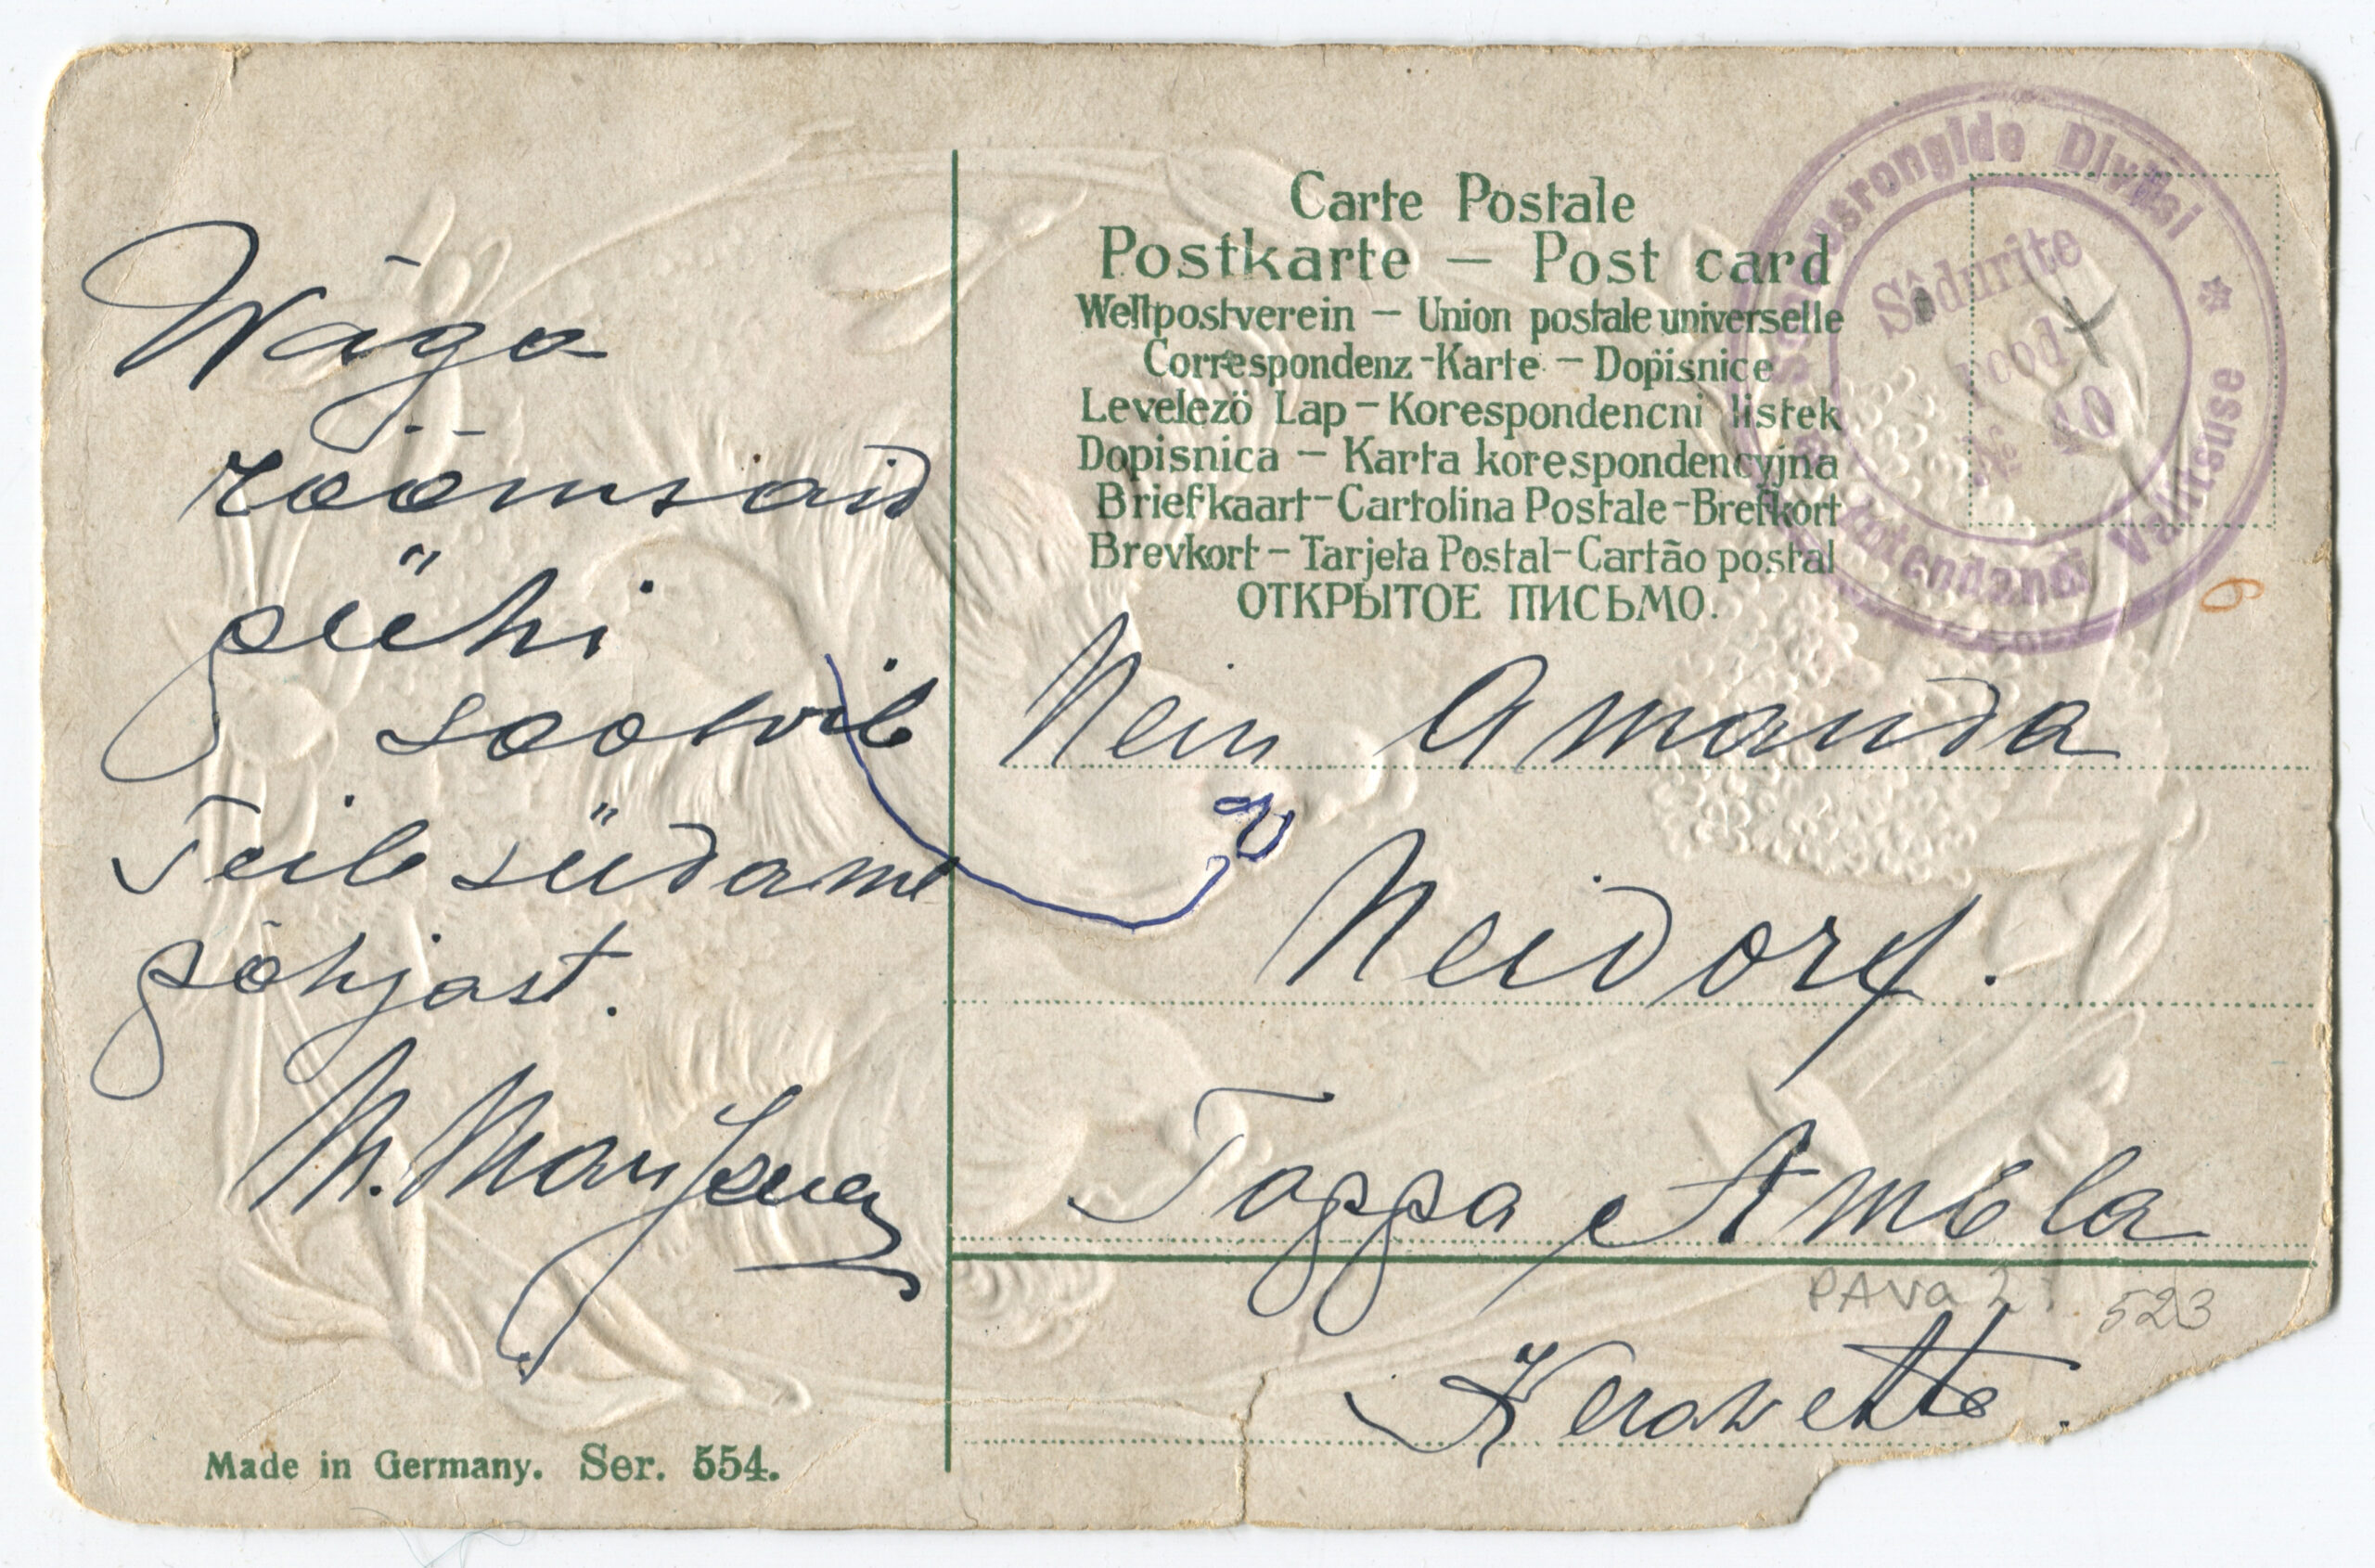 Wäga
rõõmsaid
pühi
soowib
Teile südame
põhjast.
M.
Made in Germany. Ser. 554.
Carte Postale
Postkarte — Post card
Weltpostverein — Union postale universelle
Correspondenz-Karte — Dopisnice
Levelezö Lap — Korespondencni listek
Dopisnica — Karta korespondencyjna
Briefkaart-Cartolina Postale-Brefkort
Brevkort — Tarjeta Postal-Cartão postal
ОТКРЫТОЕ ПИСЬМО.
Soomusrongide Diviisi
Intendandi Valitsuse
Sõdurite
pood
№ 10
6
Nein Amanda
Neidorf.
Toppa Ambla
PAVa 2
523
Kerawette.